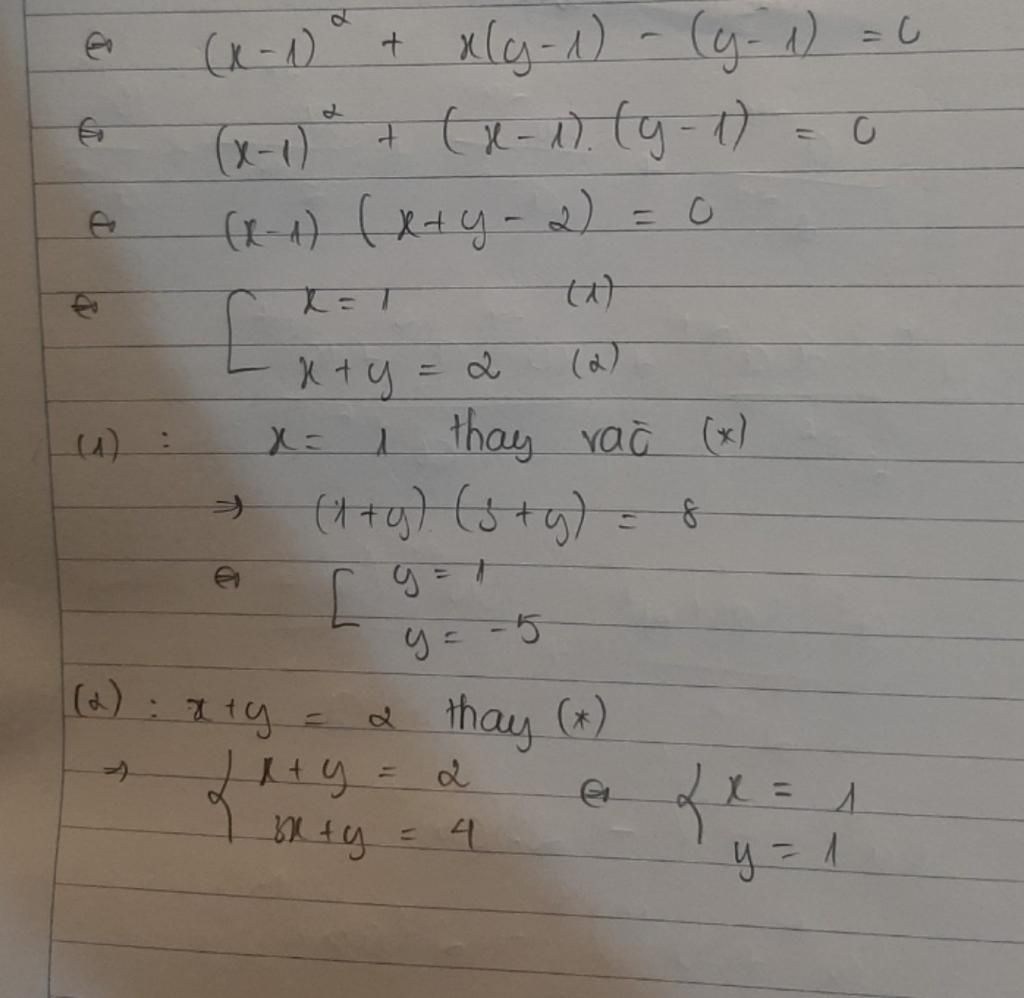 ⇔ (x-1)² + x(y-1) - (y-1) = 0
⇔ (x-1)² + (x-1).(y-1) = 0
⇔ (x-1) (x+y-2) = 0
⇔ [ x = 1 (1)
x+y = 2 (2)
(1) : x = 1 thay vào (*)
⇒ (1+y) (3+y) = 8
⇔ [ y = 1
y = -5
(2) : x+y = 2 thay (*)
⇒ { x+y = 2 ⇔ { x = 1
3x+y = 4 y = 1